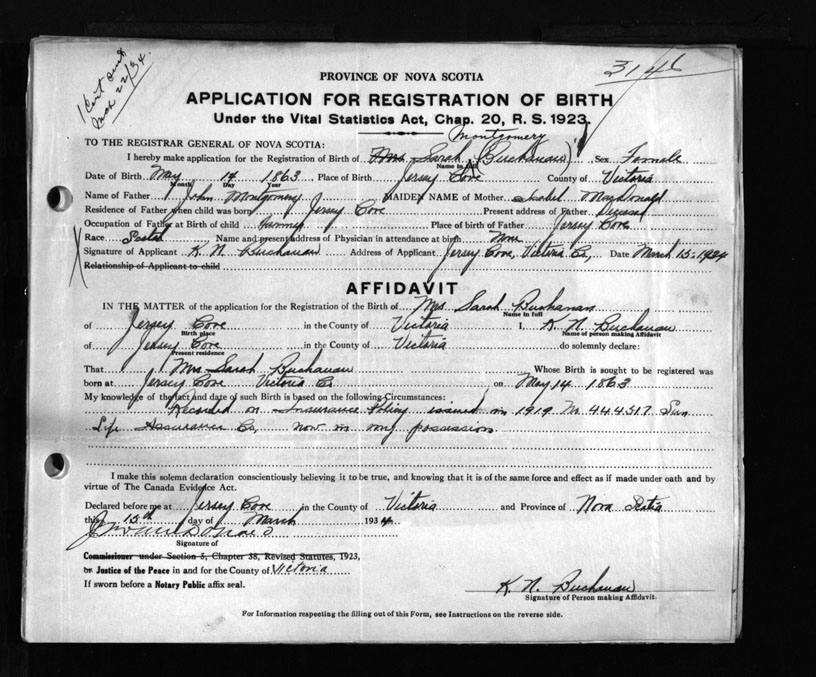 1 Cert sent
Mch 22/34.
3146
PROVINCE OF NOVA SCOTIA
APPLICATION FOR REGISTRATION OF BIRTH
Under the Vital Statistics Act, Chap. 20, R. S. 1923.
TO THE REGISTRAR GENERAL OF NOVA SCOTIA:
Montgomery
I hereby make application for the Registration of Birth of Mrs Sarah (Buchanan) Sex Female
Name in full
Date of Birth May 14 1863 Place of Birth Jersey Cove County of Victoria
Month Day Year
Name of Father John Montgomery MAIDEN NAME of Mother Isabel MacDonald
Residence of Father when child was born Jersey Cove Present address of Father Deceased
Occupation of Father at Birth of child Place of birth of Father Jersey Cove
Race Scotch Name and present address of Physician in attendance at birth None
Signature of Applicant K. N. Buchanan Address of Applicant Jersey Cove, Victoria Co, Date March 15-1934
Relationship of Applicant to child
AFFIDAVIT
IN THE MATTER of the application for the Registration of the Birth of Mrs. Sarah Buchanan
Name in full
of Jersey Cove in the County of Victoria I, K. N. Buchanan
Birth place Name of person making Affidavit
of Jersey Cove in the County of Victoria do solemnly declare:
Present residence
That Mrs Sarah Buchanan Whose Birth is sought to be registered was
born at Jersey Cove Victoria Co on May 14 1863
My knowledge of the fact and date of such Birth is based on the following Circumstances:
Recorded on Insurance Policy issued in 1919 No 444317 Sun
Life Assurance Co, now in my possession
I make this solemn declaration conscientiously believing it to be true, and knowing that it is of the same force and effect as if made under oath and by
virtue of The Canada Evidence Act.
Declared before me at Jersey Cove in the County of Victoria and Province of Nova Scotia
this 15th day of March 1934
Signature of
Commissioner under Section 5, Chapter 38, Revised Statutes, 1923,
or Justice of the Peace in and for the County of Victoria
If sworn before a Notary Public affix seal.
K. N. Buchanan
Signature of Person making Affidavit.
For Information respecting the filling out of this Form, see Instructions on the reverse side.